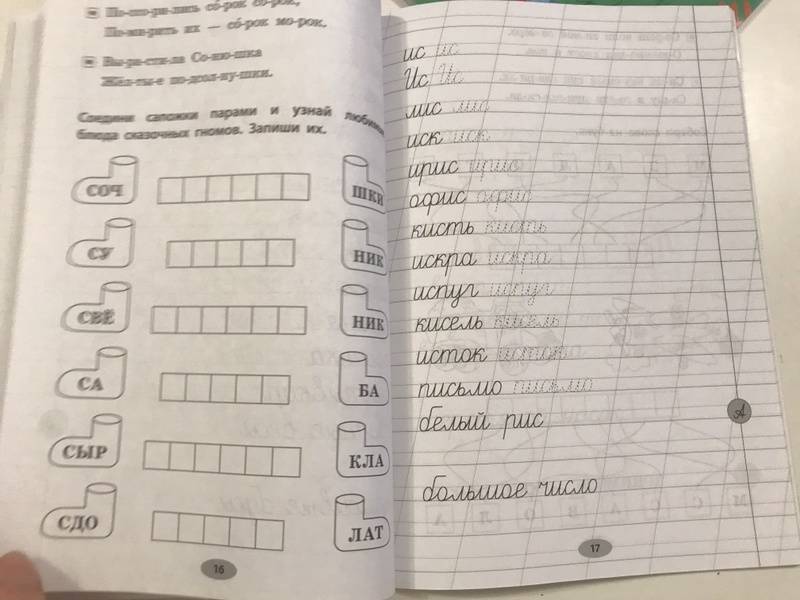 По-ссо-ри-лись со́-рок со́-рок,
По-ми-рить их — со́-рок мо-рок.
Вы-ра-сти-ла Со-ню-шка
Жёл-ты-е по-дсол-ну-шки.
Соедини сапожки парами и узнай любимые
блюда сказочных гномов. Запиши их.
СОЧ ШКИ
СУ НИК
СВЁ НИК
СА БА
СЫР КЛА
СДО ЛАТ
16
ис ис
Ис Ис
мис мис
иск иск
ирис ирис
офис офис
кисть кисть
искра искра
испуг испуг
кисель кисель
исток исток
письмо письмо
белый рис
А
большое число
17